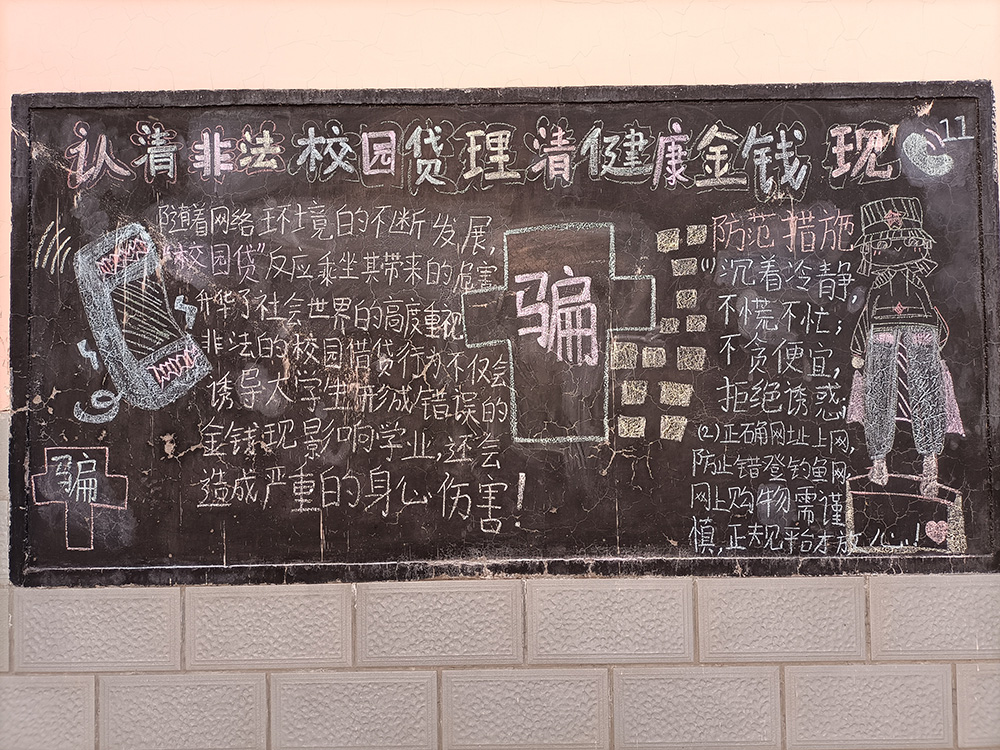 认清非法校园贷 理清健康金钱 现
11
随着网络环境的不断发展,
"校园贷"反应乘坐其带来的危害
升华了社会世界的高度重视
非法的校园借贷行为不仅会
诱导大学生形成错误的
金钱现影响学业,还会
造成严重的身心伤害!
骗
骗
防范措施
(1)沉着冷静,
不慌不忙;
不贪便宜,
拒绝诱惑;
(2)正确网址上网,
防止错登钓鱼网,
网上购物需谨
慎,正规平台才放心!